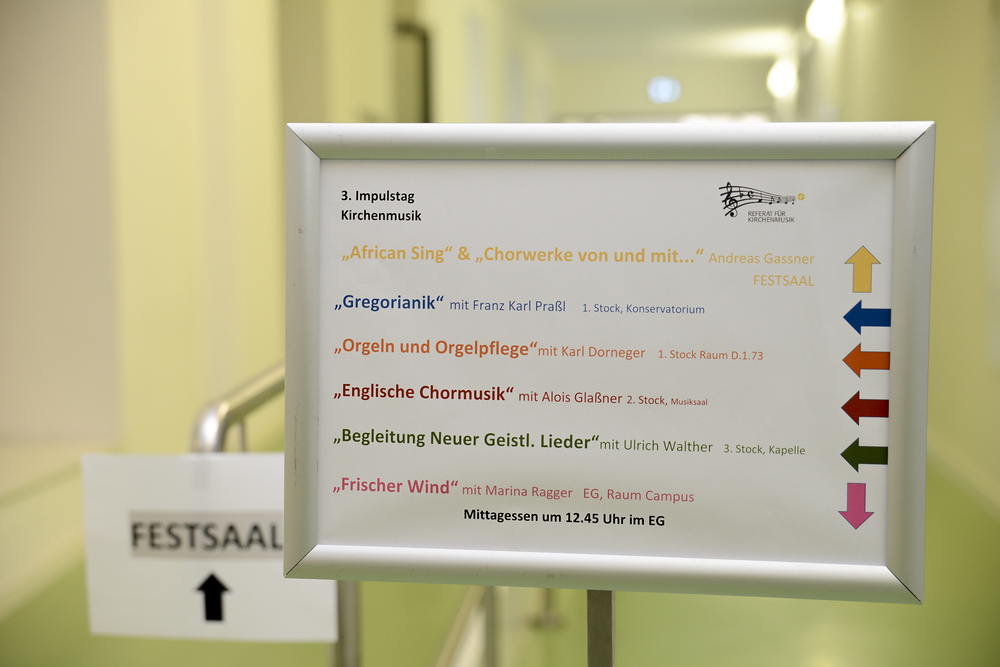 3. Impulstag
Kirchenmusik
REFERAT FÜR
KIRCHENMUSIK
„African Sing“ & „Chorwerke von und mit...“ Andreas Gassner
FESTSAAL
„Gregorianik“ mit Franz Karl Praßl 1. Stock, Konservatorium
„Orgeln und Orgelpflege“mit Karl Dorneger 1. Stock Raum D.1.73
„Englische Chormusik“ mit Alois Glaßner 2. Stock, Musiksaal
„Begleitung Neuer Geistl. Lieder“mit Ulrich Walther 3. Stock, Kapelle
„Frischer Wind“ mit Marina Ragger EG, Raum Campus
Mittagessen um 12.45 Uhr im EG
FESTSAAL